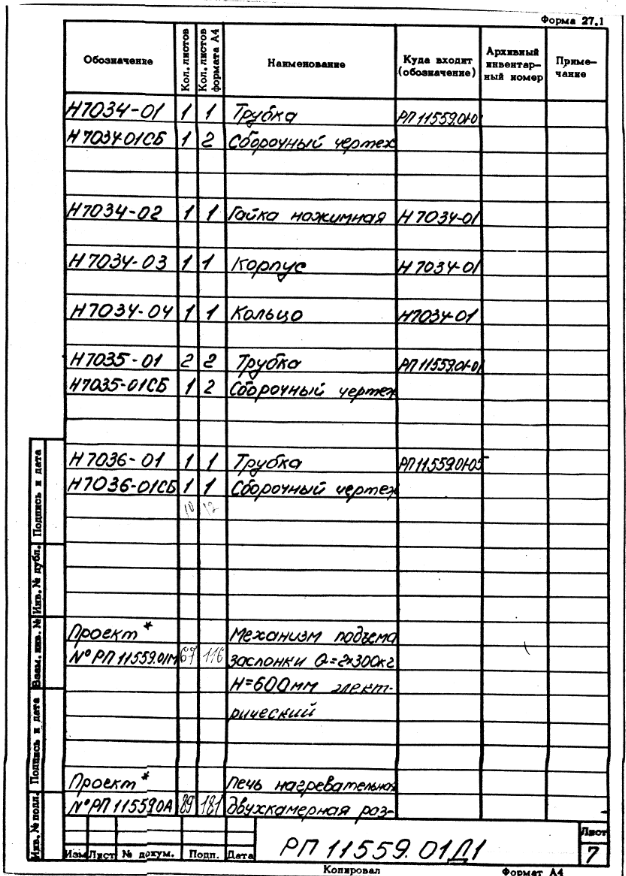 Форма 27.1
Обозначение Кол. листов Кол. листов формата А4 Наименование Куда входит (обозначение) Архивный инвентар-ный номер Приме-чание
Н7034-01 1 1 Трубка РП11559.01-0
Н7034-01СБ 1 2 Сборочный чертеж
Н7034-02 1 1 Гайка нажимная Н7034-01
Н7034-03 1 1 Корпус Н7034-01
Н7034-04 1 1 Кольцо Н7034-01
Н7035-01 2 2 Трубка РП11559.01-0
Н7035-01СБ 1 2 Сборочный чертеж
Н7036-01 1 1 Трубка РП11559.01-05
Н7036-01СБ 1 1 Сборочный чертеж
10 12
Проект* Механизм подъема
№РП11559.01М 67 116 заслонки Q=2х300кг
Н=600мм элект-
рический
Проект* Печь нагревательная
№РП11559.0А 89 181 двухкамерная раз-
Инв. № подл. Подпись и дата Взам. инв. № Инв. № дубл. Подпись и дата
Изм Лист № докум. Подп. Дата
РП 11559.01Д1
Лист
7
Копировал Формат А4